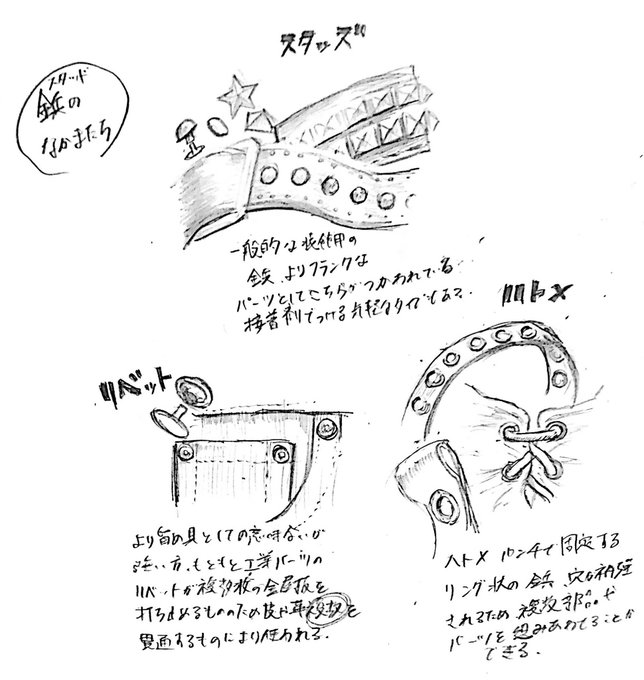 スタッズ
スタッド
鋲の
なかまたち
一般的な装飾用の
鋲、よりフランクな
パーツとしてこちらがつかわれている…
接着剤でつける気軽なタイプもある.
ハトメ
リベット
より留め具としての意味あいが
強い方、もともと工業パーツの
リベットが複数枚の金属板を
打ち止めるもののため 複数枚を
貫通するものにより使われる.
ハトメ パンチで固定する
リング状の鋲、穴が補強
されるため 複数部品や
パーツを組みあわせることが
できる.